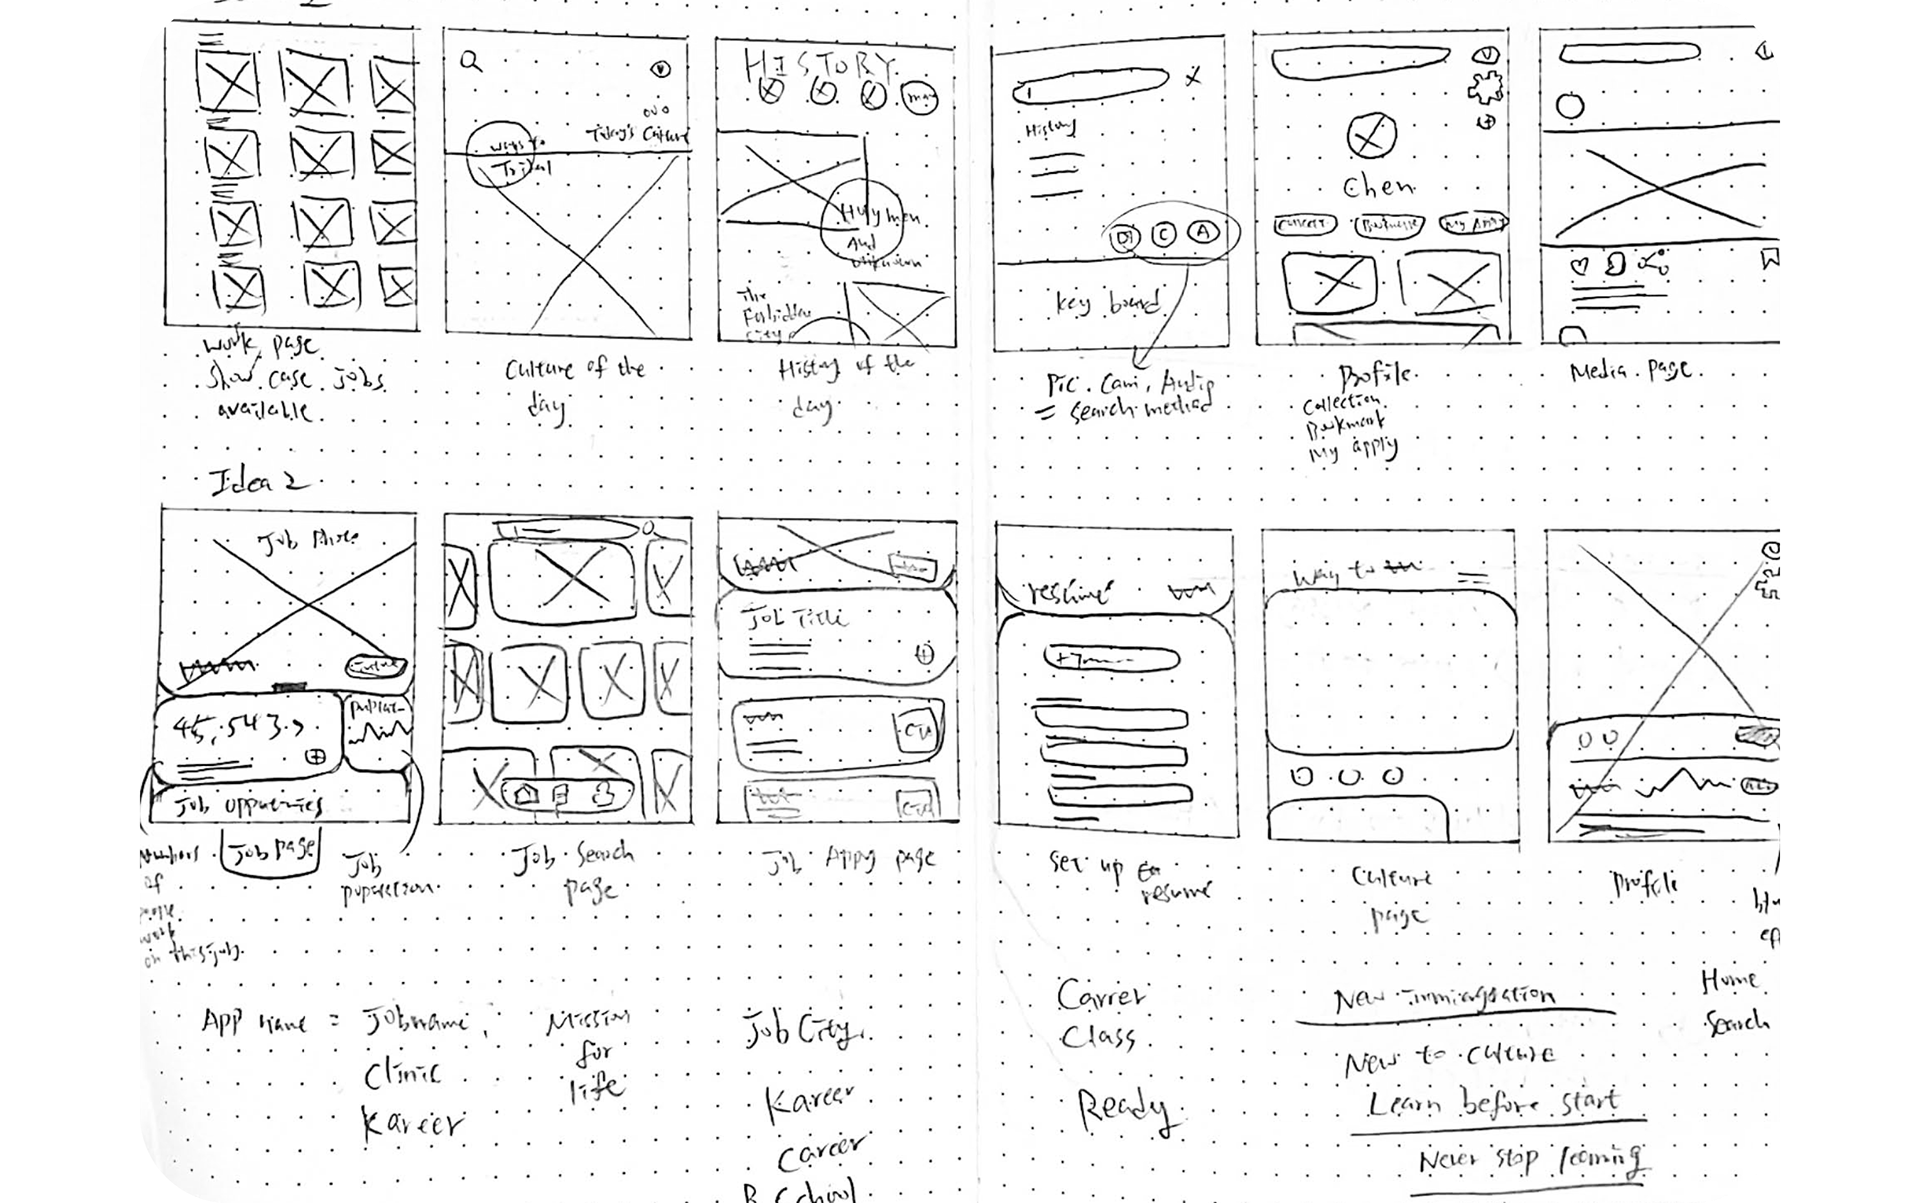 HISTORY
Today's Culture
ways to
Tribal
History
Holy men
And
Unknown
The
Forbidden
City
C
A
key board
Chen
work page
Show case jobs
available
Culture of the
day
History of the
day
Pic. Cam, Audio
= search method
Profile
Collection
Bookmark
My apply
Media page
Idea 2
Job Photo
45,543.
Job Title
resume
way to
Job page
Job
Job Search
page
Job Appy page
Set up
resume
Culture
page
Profile
Numbers
of
people
work
on this job.
App name = Jobname,
Clinic
Kareer
Mission
for
life
Job City,
Kareer
Career
Carrer
Class
Ready
New immiagration
New to culture
Learn before start
Never stop learning
Home
Search